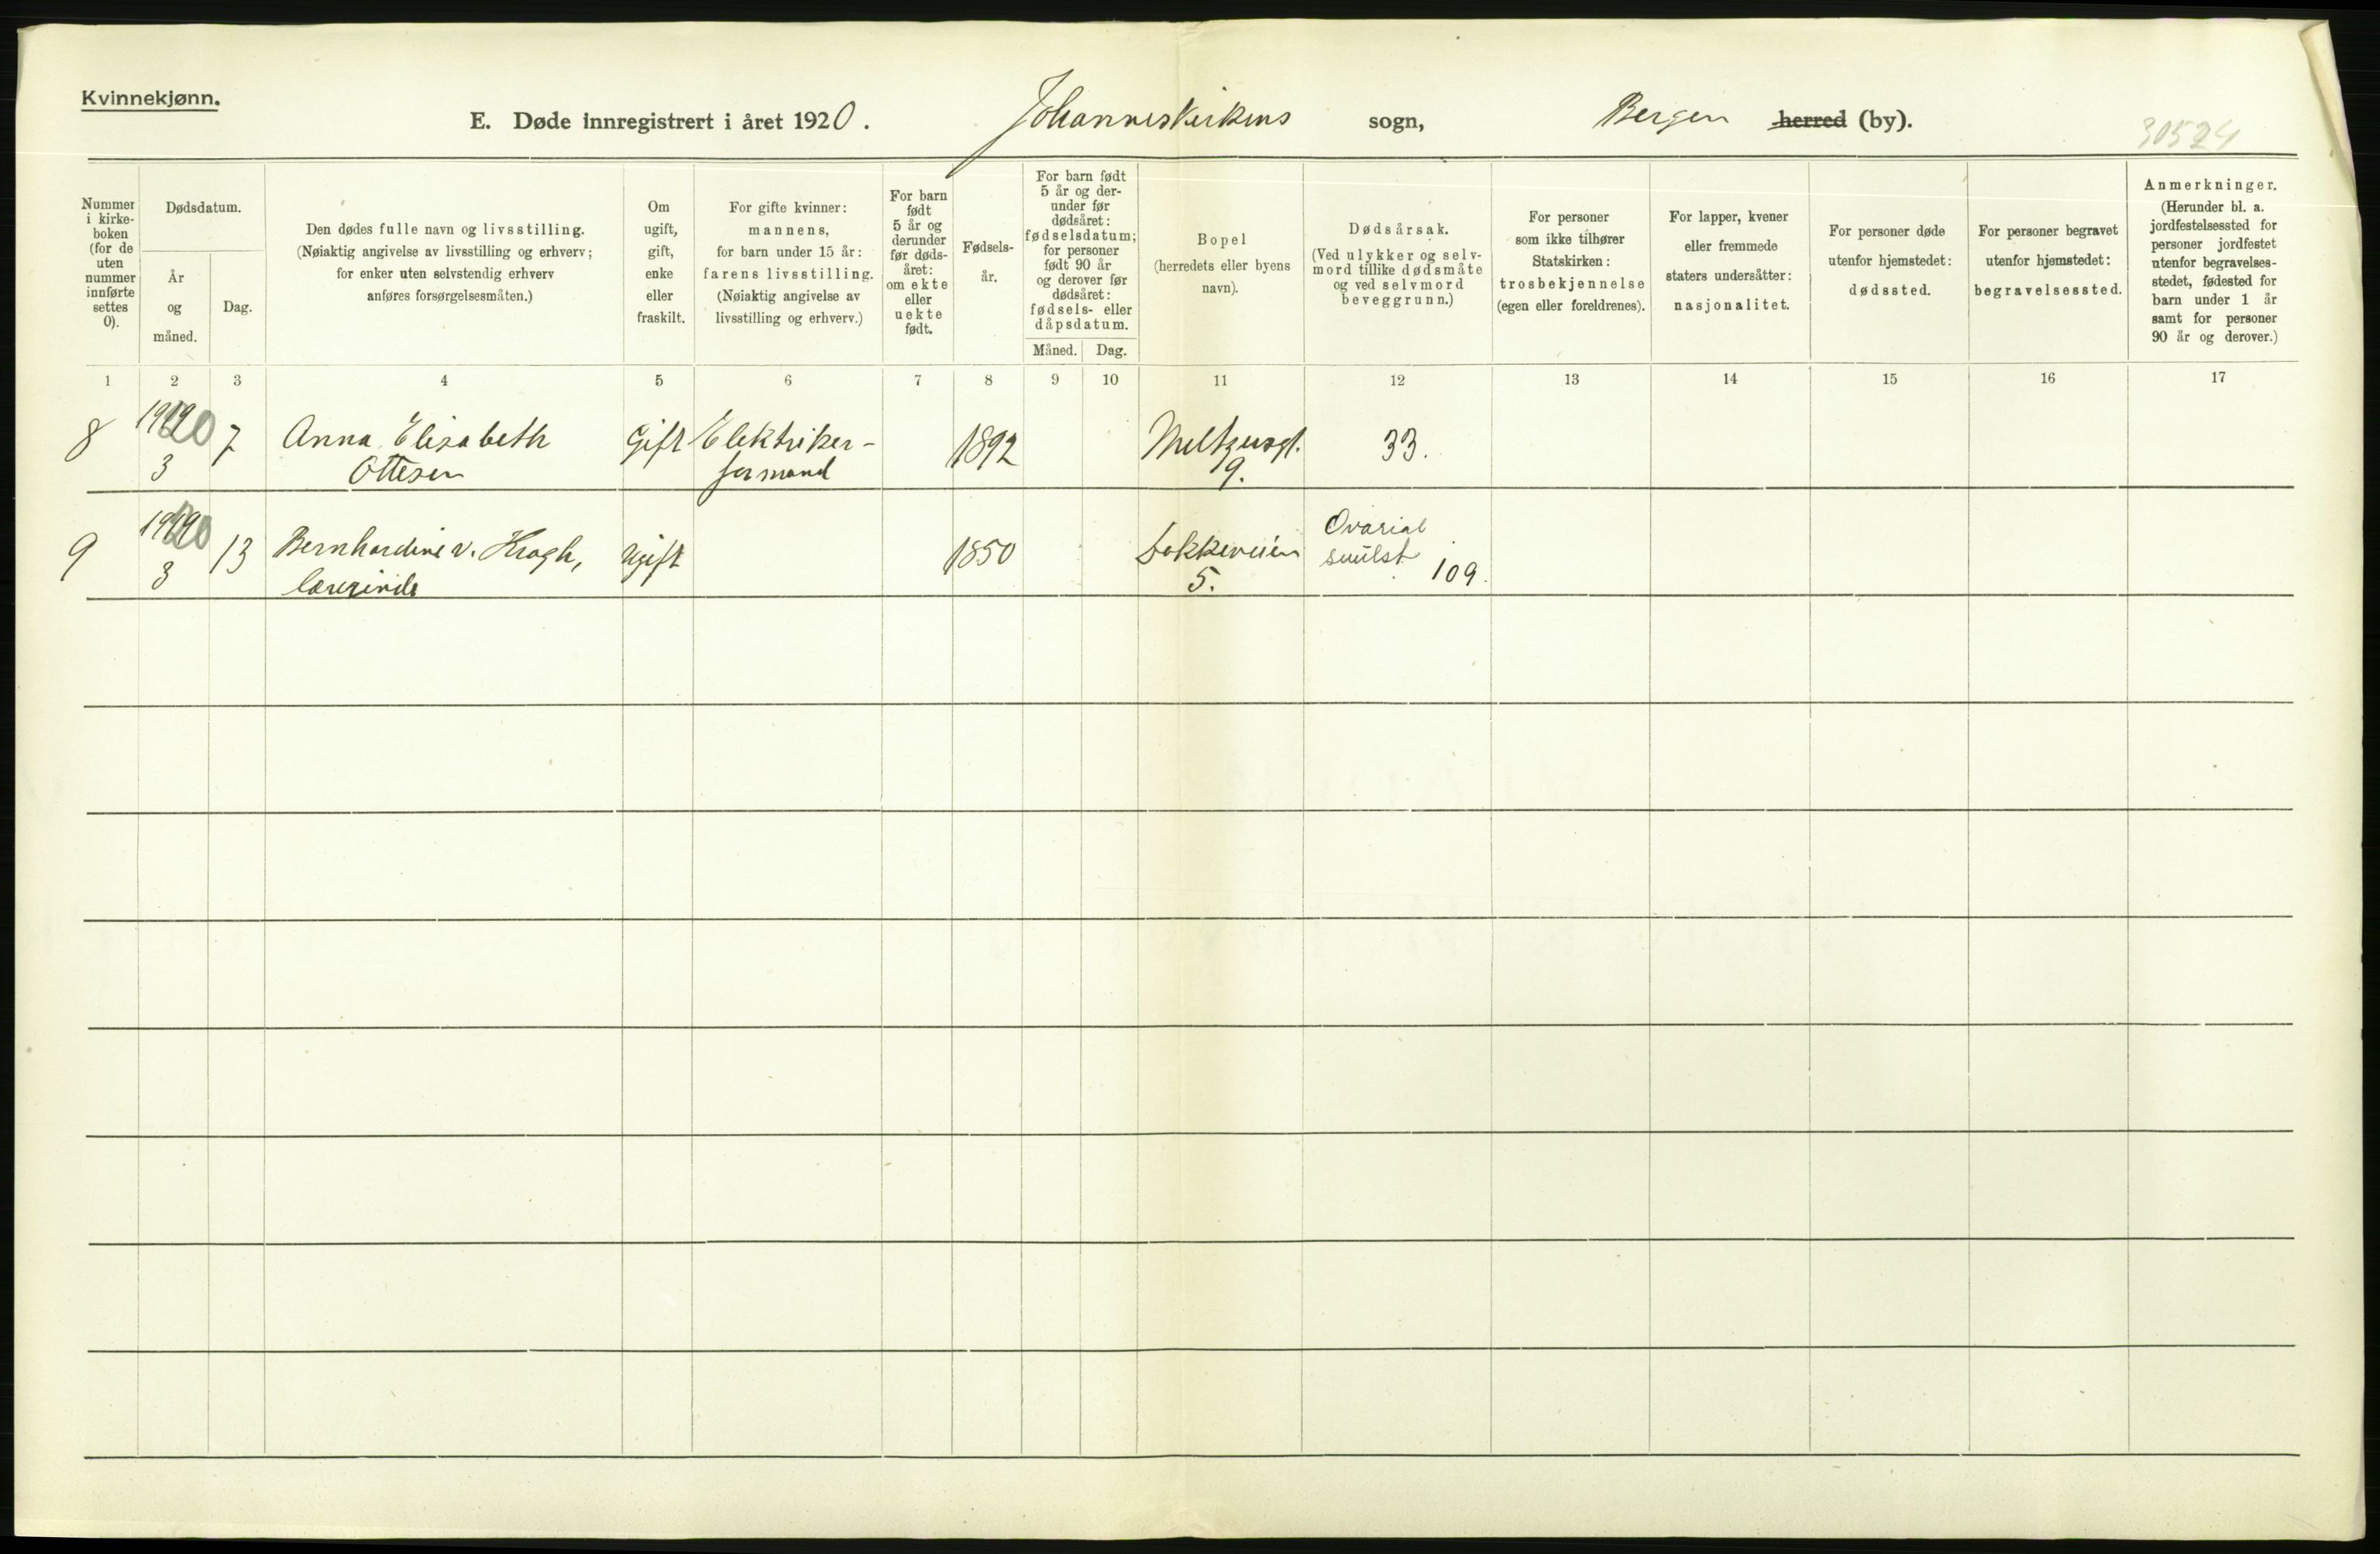 Kvinnekjønn.
E. Døde innregistrert i året 1920. Johanneskirkens sogn, Bergen herred (by).
30524
Nummer i kirke-boken (for de uten nummer innførte settes 0).
Dødsdatum.
År og måned.
Dag.
Den dødes fulle navn og livsstilling.
(Nøiaktig angivelse av livsstilling og erhverv;
for enker uten selvstendig erhverv
anføres forsørgelsesmåten.)
Om
ugift,
gift,
enke
eller
fraskilt.
For gifte kvinner:
mannens,
for barn under 15 år:
farens livsstilling.
(Nøiaktig angivelse av
livsstilling og erhverv.)
For barn
født
5 år og
derunder
før døds-
året:
om ekte
eller
uekte
født.
Fødsels-
år.
For barn født
5 år og der-
under før
dødsåret:
fødselsdatum;
for personer
født 90 år
og derover før
dødsåret:
fødsels- eller
dåpsdatum.
Måned. Dag.
Bopel
(herredets eller byens
navn).
Dødsårsak.
(Ved ulykker og selv-
mord tillike dødsmåte
og ved selvmord
beveggrunn.)
For personer
som ikke tilhører
Statskirken:
trosbekjennelse
(egen eller foreldrenes).
For lapper, kvener
eller fremmede
staters undersåtter:
nasjonalitet.
For personer døde
utenfor hjemstedet:
dødssted.
For personer begravet
utenfor hjemstedet:
begravelsessted.
Anmerkninger.
(Herunder bl. a.
jordfestelsessted for
personer jordfestet
utenfor begravelses-
stedet, fødested for
barn under 1 år
samt for personer
90 år og derover.)
1 2 3 4 5 6 7 8 9 10 11 12 13 14 15 16 17
8 1920 7 Anna Elisabeth Gift Elektriker- 1892 Meltzersgt. 33.
3 Ottesen formand 9.
9 1920 13 Bernhardine v. Krogh, Ugift 1850 Dokkeveien Ovarial
svulst 109.
3 lærerinde 5.